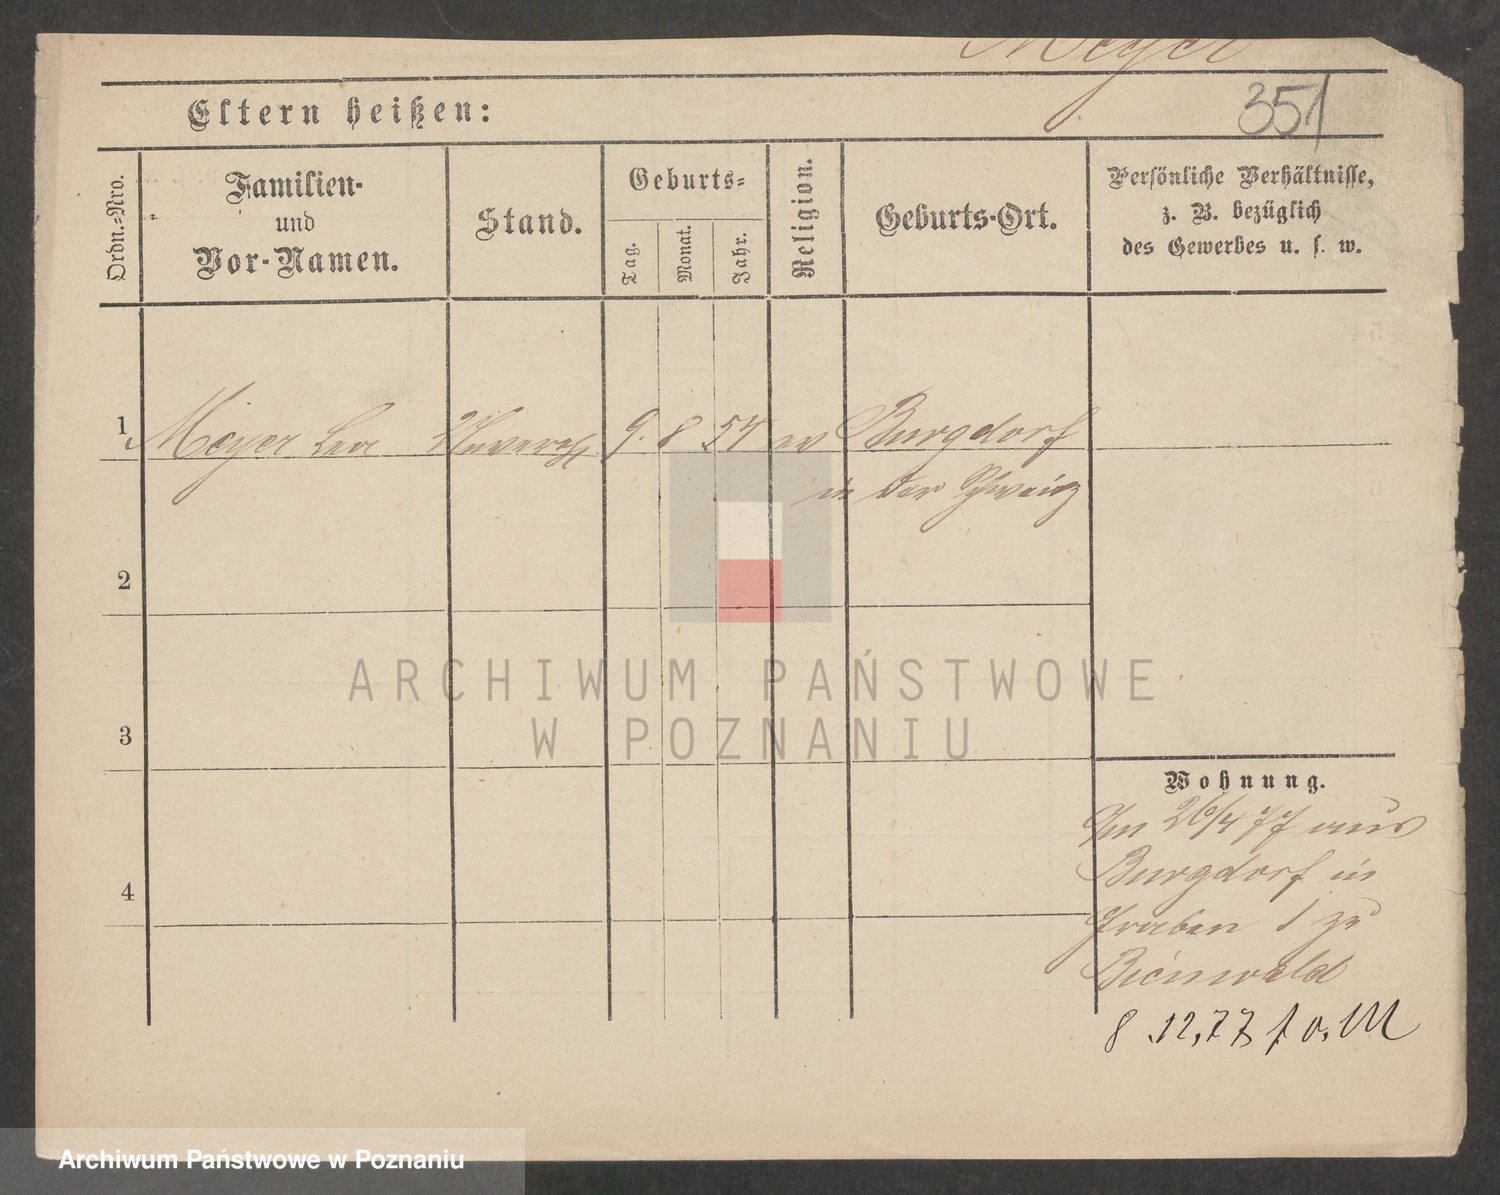 Meyer
351
Eltern heißen:
Ordn.-Nro.
Familien-
und
Vor-Namen.
Stand.
Geburts-
Tag.
Monat.
Jahr.
Religion.
Geburts-Ort.
Persönliche Verhältnisse,
z. B. bezüglich
des Gewerbes u. s. w.
1 Meyer Lea 9. 8 54 ev Burgdorf
in der Schweiz
2
3
4
Wohnung.
Am 26/4 77 aus
Burgdorf in
Graben 1 zu
8.12.77
ARCHIWUM PAŃSTWOWE
W POZNANIU
Archiwum Państwowe w Poznaniu